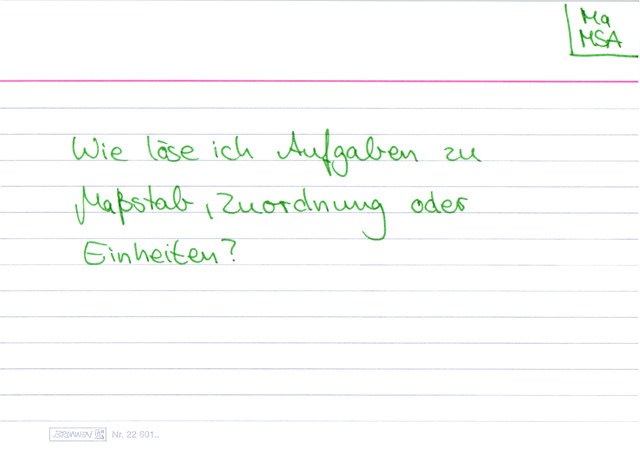 Ma
MSA
Wie löse ich Aufgaben zu
Maßstab, Zuordnung oder
Einheiten?
Nr. 22 601